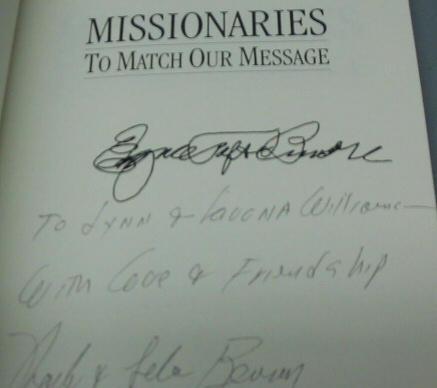 MISSIONARIES
TO MATCH OUR MESSAGE
Ezra Taft Benson
TO LYNN & LAVONA Williams
With Love & Friendship
Mark & Lela Benson